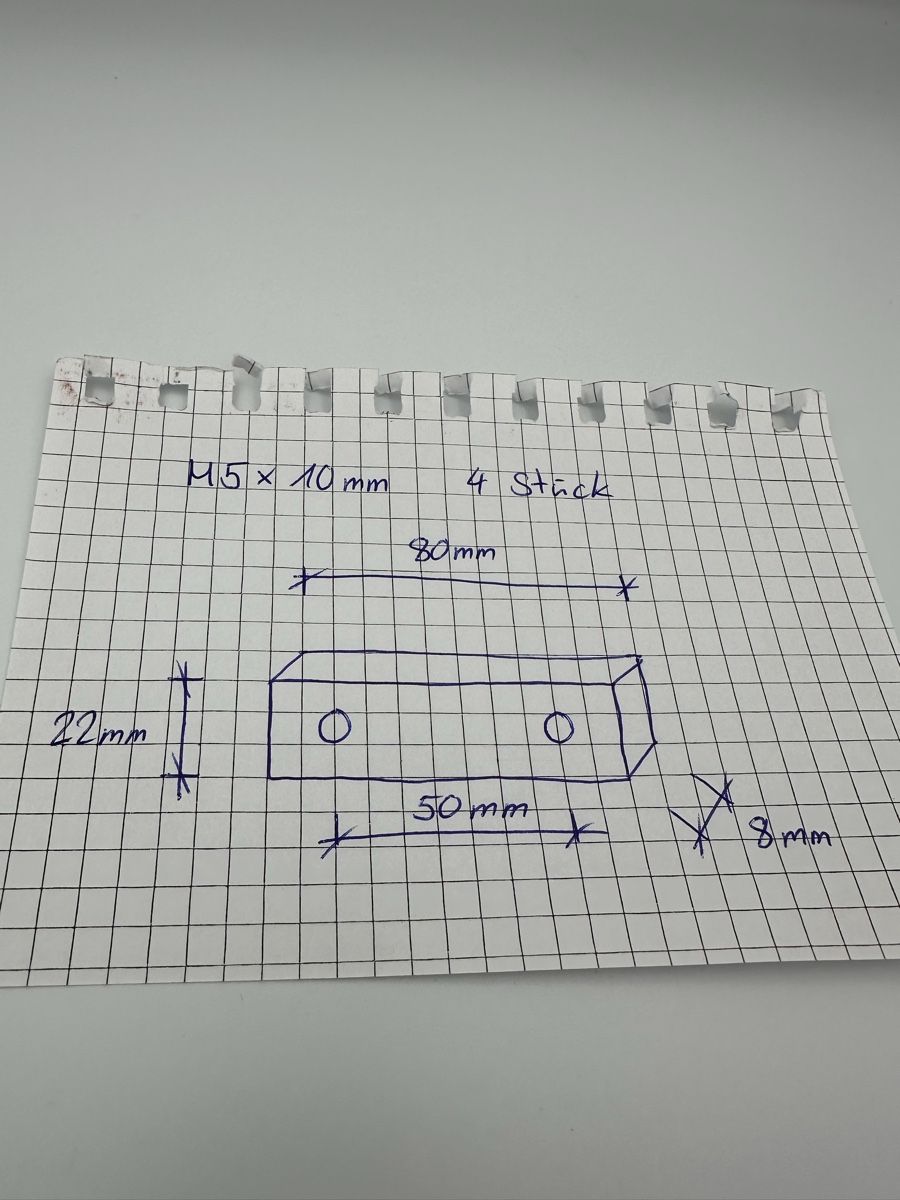 M5 x 10 mm 4 Stück
80mm
22mm
50 mm
8 mm